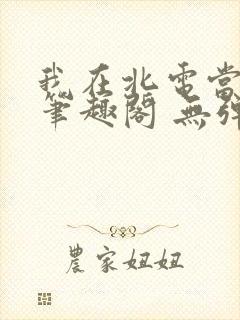 我在北電當
筆趣閣 無彈
農家妞妞